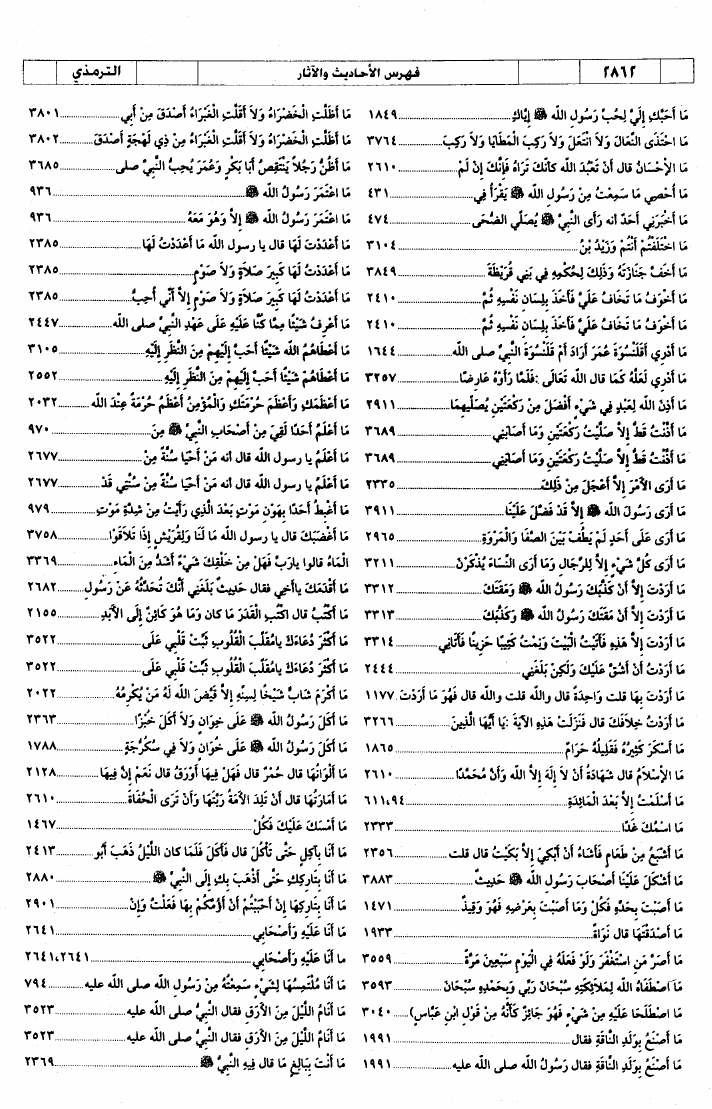 ٢٨٦٢
فهرس الأحاديث والآثار
الترمذي
مَا أَحَبَّكِ إِلَيَّ لِحُبِّ رَسُولِ الله ﷺ إِيَّاكِ ١٨٤٩
مَا احْتَذَى النِّعَالَ وَلاَ انْتَعَلَ وَلاَ رَكِبَ الْمَطَايَا وَلاَ رَكِبَ ٣٧٦٤
مَا الإِحْسَانُ قال أَنْ تَعْبُدَ الله كَأَنَّكَ تَرَاهُ فَإِنَّكَ إِنْ لَمْ ٢٦١٠
مَا أُحْصِي مَا سَمِعْتُ مِنْ رَسُولِ الله ﷺ يَقْرَأُ فِي ٤٣١
مَا أَخْبَرَنِي أَحَدٌ أنه رَأَى النَّبِيَّ ﷺ يُصَلِّي الضُّحَى ٤٧٤
مَا اخْتَلَفْتُمْ أَنْتُمْ وَزَيْدُ بْنُ ٣١٠٤
مَا أَخَفَّ جَنَازَتَهُ وَذَلِكَ لِحُكْمِهِ فِي بَنِي قُرَيْظَةَ ٣٨٤٩
مَا أَخْوَفُ مَا تَخَافُ عَلَيَّ فَأَخَذَ بِلِسَانِ نَفْسِهِ ثُمَّ ٢٤١٠
مَا أَخْوَفُ مَا تَخَافُ عَلَيَّ فَأَخَذَ بِلِسَانِ نَفْسِهِ ثُمَّ ٢٤١٠
مَا أَدْرِي أَقَلَنْسُوَةَ عُمَرَ أَرَادَ أَمْ قَلَنْسُوَةَ النَّبِيِّ صلى الله ١٦٤٤
مَا أَدْرِي لَعَلَّهُ كَمَا قال الله تَعَالَى :فَلَمَّا رَأَوْهُ عَارِضًا ٣٢٥٧
مَا أَذِنَ الله لِعَبْدٍ فِي شَيْءٍ أَفْضَلَ مِنْ رَكْعَتَيْنِ يُصَلِّيهِمَا ٢٩١١
مَا أَذَّنْتُ قَطُّ إِلاَّ صَلَّيْتُ رَكْعَتَيْنِ وَمَا أَصَابَنِي ٣٦٨٩
مَا أَذَّنْتُ قَطُّ إِلاَّ صَلَّيْتُ رَكْعَتَيْنِ وَمَا أَصَابَنِي ٣٦٨٩
مَا أَرَى الأَمْرَ إِلاَّ أَعْجَلَ مِنْ ذَلِكَ ٢٣٣٥
مَا أَرَى رَسُولَ الله ﷺ إِلاَّ قَدْ فَضَّلَ عَلَيْنَا ٣٩١١
مَا أَرَى عَلَى أَحَدٍ لَمْ يَطُفْ بَيْنَ الصَّفَا وَالْمَرْوَةِ ٢٩٦٥
مَا أَرَى كُلَّ شَيْءٍ إِلاَّ لِلرِّجَالِ وَمَا أَرَى النِّسَاءَ يُذْكَرْنَ ٣٢١١
مَا أَرَدْتَ إِلاَّ أَنْ كَذَّبَكَ رَسُولُ الله ﷺ وَمَقَتَكَ ٣٣١٢
مَا أَرَدْتَ إِلاَّ أَنْ مَقَتَكَ رَسُولُ الله ﷺ وَكَذَّبَكَ ٣٣١٣
مَا أَرَدْتَ إِلاَّ هَذِهِ فَأَتَيْتُ الْبَيْتَ وَنِمْتُ كَئِيبًا حَزِينًا فَأَتَانِي ٣٣١٤
مَا أَرَدْتُ أَنْ أَشُقَّ عَلَيْكَ وَلَكِنْ بَلَغَنِي ٢٤٤٤
مَا أَرَدْتَ بِهَا قلت وَاحِدَةً قال والله قلت والله قال فَهُوَ مَا أَرَدْتَ ١١٧٧
مَا أَرَدْتُ خِلاَفَكَ قال فَنَزَلَتْ هَذِهِ الآيَةَ :يَا أَيُّهَا الَّذِينَ ٣٢٦٦
مَا أَسْكَرَ كَثِيرُهُ فَقَلِيلُهُ حَرَامٌ ١٨٦٥
مَا الإِسْلاَمُ قال شَهَادَةُ أَنْ لاَ إِلَهَ إِلاَّ الله وَأَنَّ مُحَمَّدًا ٢٦١٠
مَا أَسْلَمْتُ إِلاَّ بَعْدَ الْمَائِدَةِ ٦١١،٩٤
مَا اسْمُكَ غَدًا ٢٣٣٣
مَا أَشْبَعُ مِنْ طَعَامٍ فَأَشَاءُ أَنْ أَبْكِيَ إِلاَّ بَكَيْتُ قال قلت ٢٣٥٦
مَا أَشْكَلَ عَلَيْنَا أَصْحَابَ رَسُولِ الله ﷺ حَدِيثٌ ٣٨٨٣
مَا أَصَبْتَ بِحَدِّهِ فَكُلْ وَمَا أَصَبْتَ بِعَرْضِهِ فَهُوَ وَقِيذٌ ١٤٧١
مَا أَصْدَقْتَهَا قال نَوَاةً ١٩٣٣
مَا أَصَرَّ مَنِ اسْتَغْفَرَ وَلَوْ فَعَلَهُ فِي الْيَوْمِ سَبْعِينَ مَرَّةً ٣٥٥٩
مَا اصْطَفَاهُ الله لِمَلاَئِكَتِهِ سُبْحَانَ رَبِّي وَبِحَمْدِهِ سُبْحَانَ ٣٥٩٣
مَا اصْطَلَحَا عَلَيْهِ مِنْ شَيْءٍ فَهُوَ جَائِزٌ كَأَنَّهُ مِنْ قَوْلِ ابْنِ عَبَّاسٍ) ٣٠٤٠
مَا أَصْنَعُ بِوَلَدِ النَّاقَةِ فقال ١٩٩١
مَا أَصْنَعُ بِوَلَدِ النَّاقَةِ فقال رَسُولُ الله صلى الله عليه ١٩٩١
مَا أَظَلَّتِ الْخَضْرَاءُ وَلاَ أَقَلَّتِ الْغَبْرَاءُ أَصْدَقَ مِنْ أَبِي ٣٨٠١
مَا أَظَلَّتِ الْخَضْرَاءُ وَلاَ أَقَلَّتِ الْغَبْرَاءُ مِنْ ذِي لَهْجَةٍ أَصْدَقَ ٣٨٠٢
مَا أَظُنُّ رَجُلاً يَنْتَقِصُ أَبَا بَكْرٍ وَعُمَرَ يُحِبُّ النَّبِيَّ صلى ٣٦٨٥
مَا اعْتَمَرَ رَسُولُ الله ﷺ ٩٣٦
مَا اعْتَمَرَ رَسُولُ الله ﷺ إِلاَّ وَهُوَ مَعَهُ ٩٣٦
مَا أَعْدَدْتَ لَهَا قال يا رسول الله مَا أَعْدَدْتُ لَهَا ٢٣٨٥
مَا أَعْدَدْتُ لَهَا كَبِيرَ صَلاَةٍ وَلاَ صَوْمٍ ٢٣٨٥
مَا أَعْدَدْتُ لَهَا كَبِيرَ صَلاَةٍ وَلاَ صَوْمٍ إِلاَّ أَنِّي أُحِبُّ ٢٣٨٥
مَا أَعْرِفُ شَيْئًا مِمَّا كُنَّا عَلَيْهِ عَلَى عَهْدِ النَّبِيِّ صلى الله ٢٤٤٧
مَا أَعْطَاهُمُ الله شَيْئًا أَحَبَّ إِلَيْهِمْ مِنَ النَّظَرِ إِلَيْهِ ٣١٠٥
مَا أَعْطَاهُمْ شَيْئًا أَحَبَّ إِلَيْهِمْ مِنَ النَّظَرِ إِلَيْهِ ٢٥٥٢
مَا أَعْظَمَكِ وَأَعْظَمَ حُرْمَتَكِ وَالْمُؤْمِنُ أَعْظَمُ حُرْمَةً عِنْدَ الله ٢٠٣٢
مَا أَعْلَمُ أَحَدًا لَقِيَ مِنْ أَصْحَابِ النَّبِيِّ ﷺ مِنَ ٩٧٠
مَا أَعْلَمُ يا رسول الله قال أنه مَنْ أَحْيَا سُنَّةً مِنْ ٢٦٧٧
مَا أَعْلَمُ يا رسول الله قال أنه مَنْ أَحْيَا سُنَّةً مِنْ سُنَّتِي قَدْ ٢٦٧٧
مَا أَغْبِطُ أَحَدًا بِهَوْنِ مَوْتٍ بَعْدَ الَّذِي رَأَيْتُ مِنْ شِدَّةِ مَوْتِ ٩٧٩
مَا أَغْضَبَكَ قال يا رسول الله مَا لَنَا وَلِقُرَيْشٍ إِذَا تَلاَقَوْا ٣٧٥٨
الْمَاءُ قالوا يارَبِّ فَهَلْ مِنْ خَلْقِكَ شَيْءٌ أَشَدُّ مِنَ الْمَاءِ ٣٣٦٩
مَا أَقْدَمَكَ ياأخِي فقال حَدِيثٌ بَلَغَنِي أَنَّكَ تُحَدِّثُهُ عَنْ رَسُولِ ٢٦٨٢
مَا أَكْتُبُ قال اكْتُبِ الْقَدَرَ مَا كَانَ وَمَا هُوَ كَائِنٌ إِلَى الأَبَدِ ٢١٥٥
مَا أَكْثَرَ دُعَاءَكَ يامُقَلِّبَ الْقُلُوبِ ثَبِّتْ قَلْبِي عَلَى ٣٥٢٢
مَا أَكْثَرَ دُعَاءَكَ يامُقَلِّبَ الْقُلُوبِ ثَبِّتْ قَلْبِي عَلَى ٣٥٢٢
مَا أَكْرَمَ شَابٌّ شَيْخًا لِسِنِّهِ إِلاَّ قَيَّضَ الله لَهُ مَنْ يُكْرِمُهُ ٢٠٢٢
مَا أَكَلَ رَسُولُ الله ﷺ عَلَى خِوَانٍ وَلاَ أَكَلَ خُبْزًا ٢٣٦٣
مَا أَكَلَ رَسُولُ الله ﷺ عَلَى خُوَانٍ وَلاَ فِي سُكُرُّجَةٍ ١٧٨٨
مَا أَلْوَانُهَا قال حُمْرٌ قال فَهَلْ فِيهَا أَوْرَقُ قال نَعَمْ إِنَّ فِيهَا ٢١٢٨
مَا أَمَارَتُهَا قال أَنْ تَلِدَ الأَمَةُ رَبَّتَهَا وَأَنْ تَرَى الْحُفَاةَ ٢٦١٠
مَا أَمْسَكَ عَلَيْكَ فَكُلْ ١٤٦٧
مَا أَنَا بِآكِلٍ حَتَّى تَأْكُلَ قال فَأَكَلَ فَلَمَّا كان اللَّيْلُ ذَهَبَ أَبُو ٢٤١٣
مَا أَنَا بِتَارِكِكِ حَتَّى أَذْهَبَ بِكِ إِلَى النَّبِيِّ ﷺ ٢٨٨٠
مَا أَنَا بِتَارِكِهَا إِنْ أَحْبَبْتُمْ أَنْ أَؤُمَّكُمْ بِهَا فَعَلْتُ وَإِنْ ٢٩٠١
مَا أَنَا عَلَيْهِ وَأَصْحَابِي ٢٦٤١
ما أنَا عَلَيْهِ وَأَصْحَابِي ٢٦٤١،٢٦٤١
مَا أَنَا مُلْتَمِسُهَا لِشَيْءٍ سَمِعْتُهُ مِنْ رَسُولِ الله صلى الله عليه ٧٩٤
مَا أَنَامُ اللَّيْلَ مِنَ الأَرَقِ فقال النَّبِيُّ صلى الله عليه ٣٥٢٣
مَا أَنَامُ اللَّيْلَ مِنَ الأَرَقِ فقال النَّبِيُّ صلى الله عليه ٣٥٢٣
مَا أَنْتَ بِبَالِغٍ مَا قال فِيهِ النَّبِيُّ ﷺ ٢٣٦٩